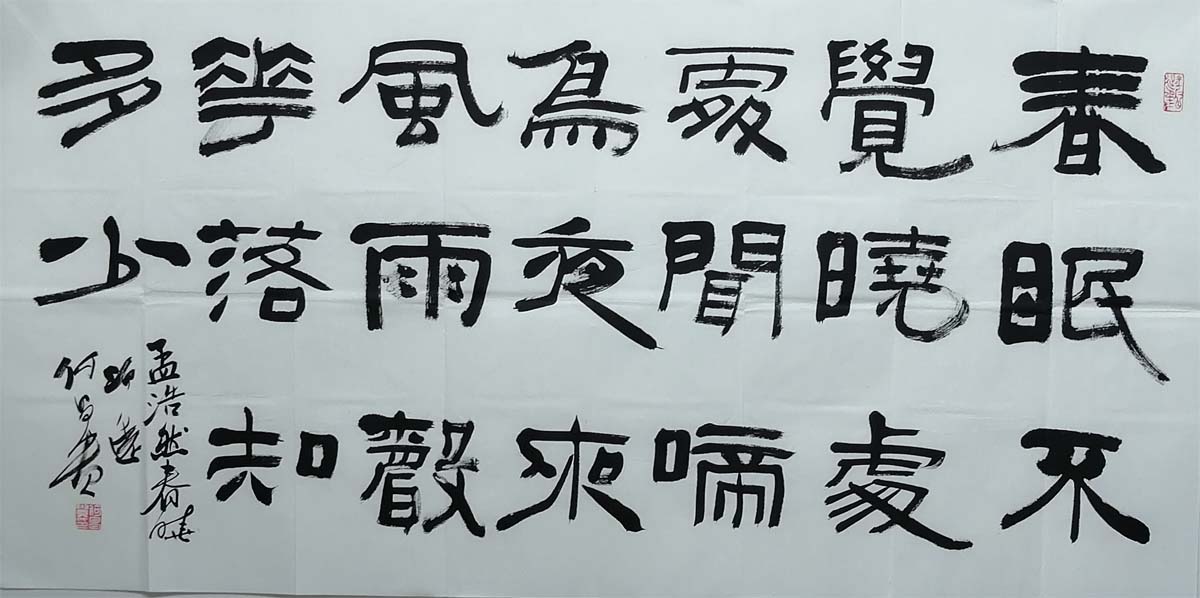 春眠不
覺曉處
處聞啼
鳥夜來
風雨聲
華落知
多少
孟浩然春曉
何昌貴